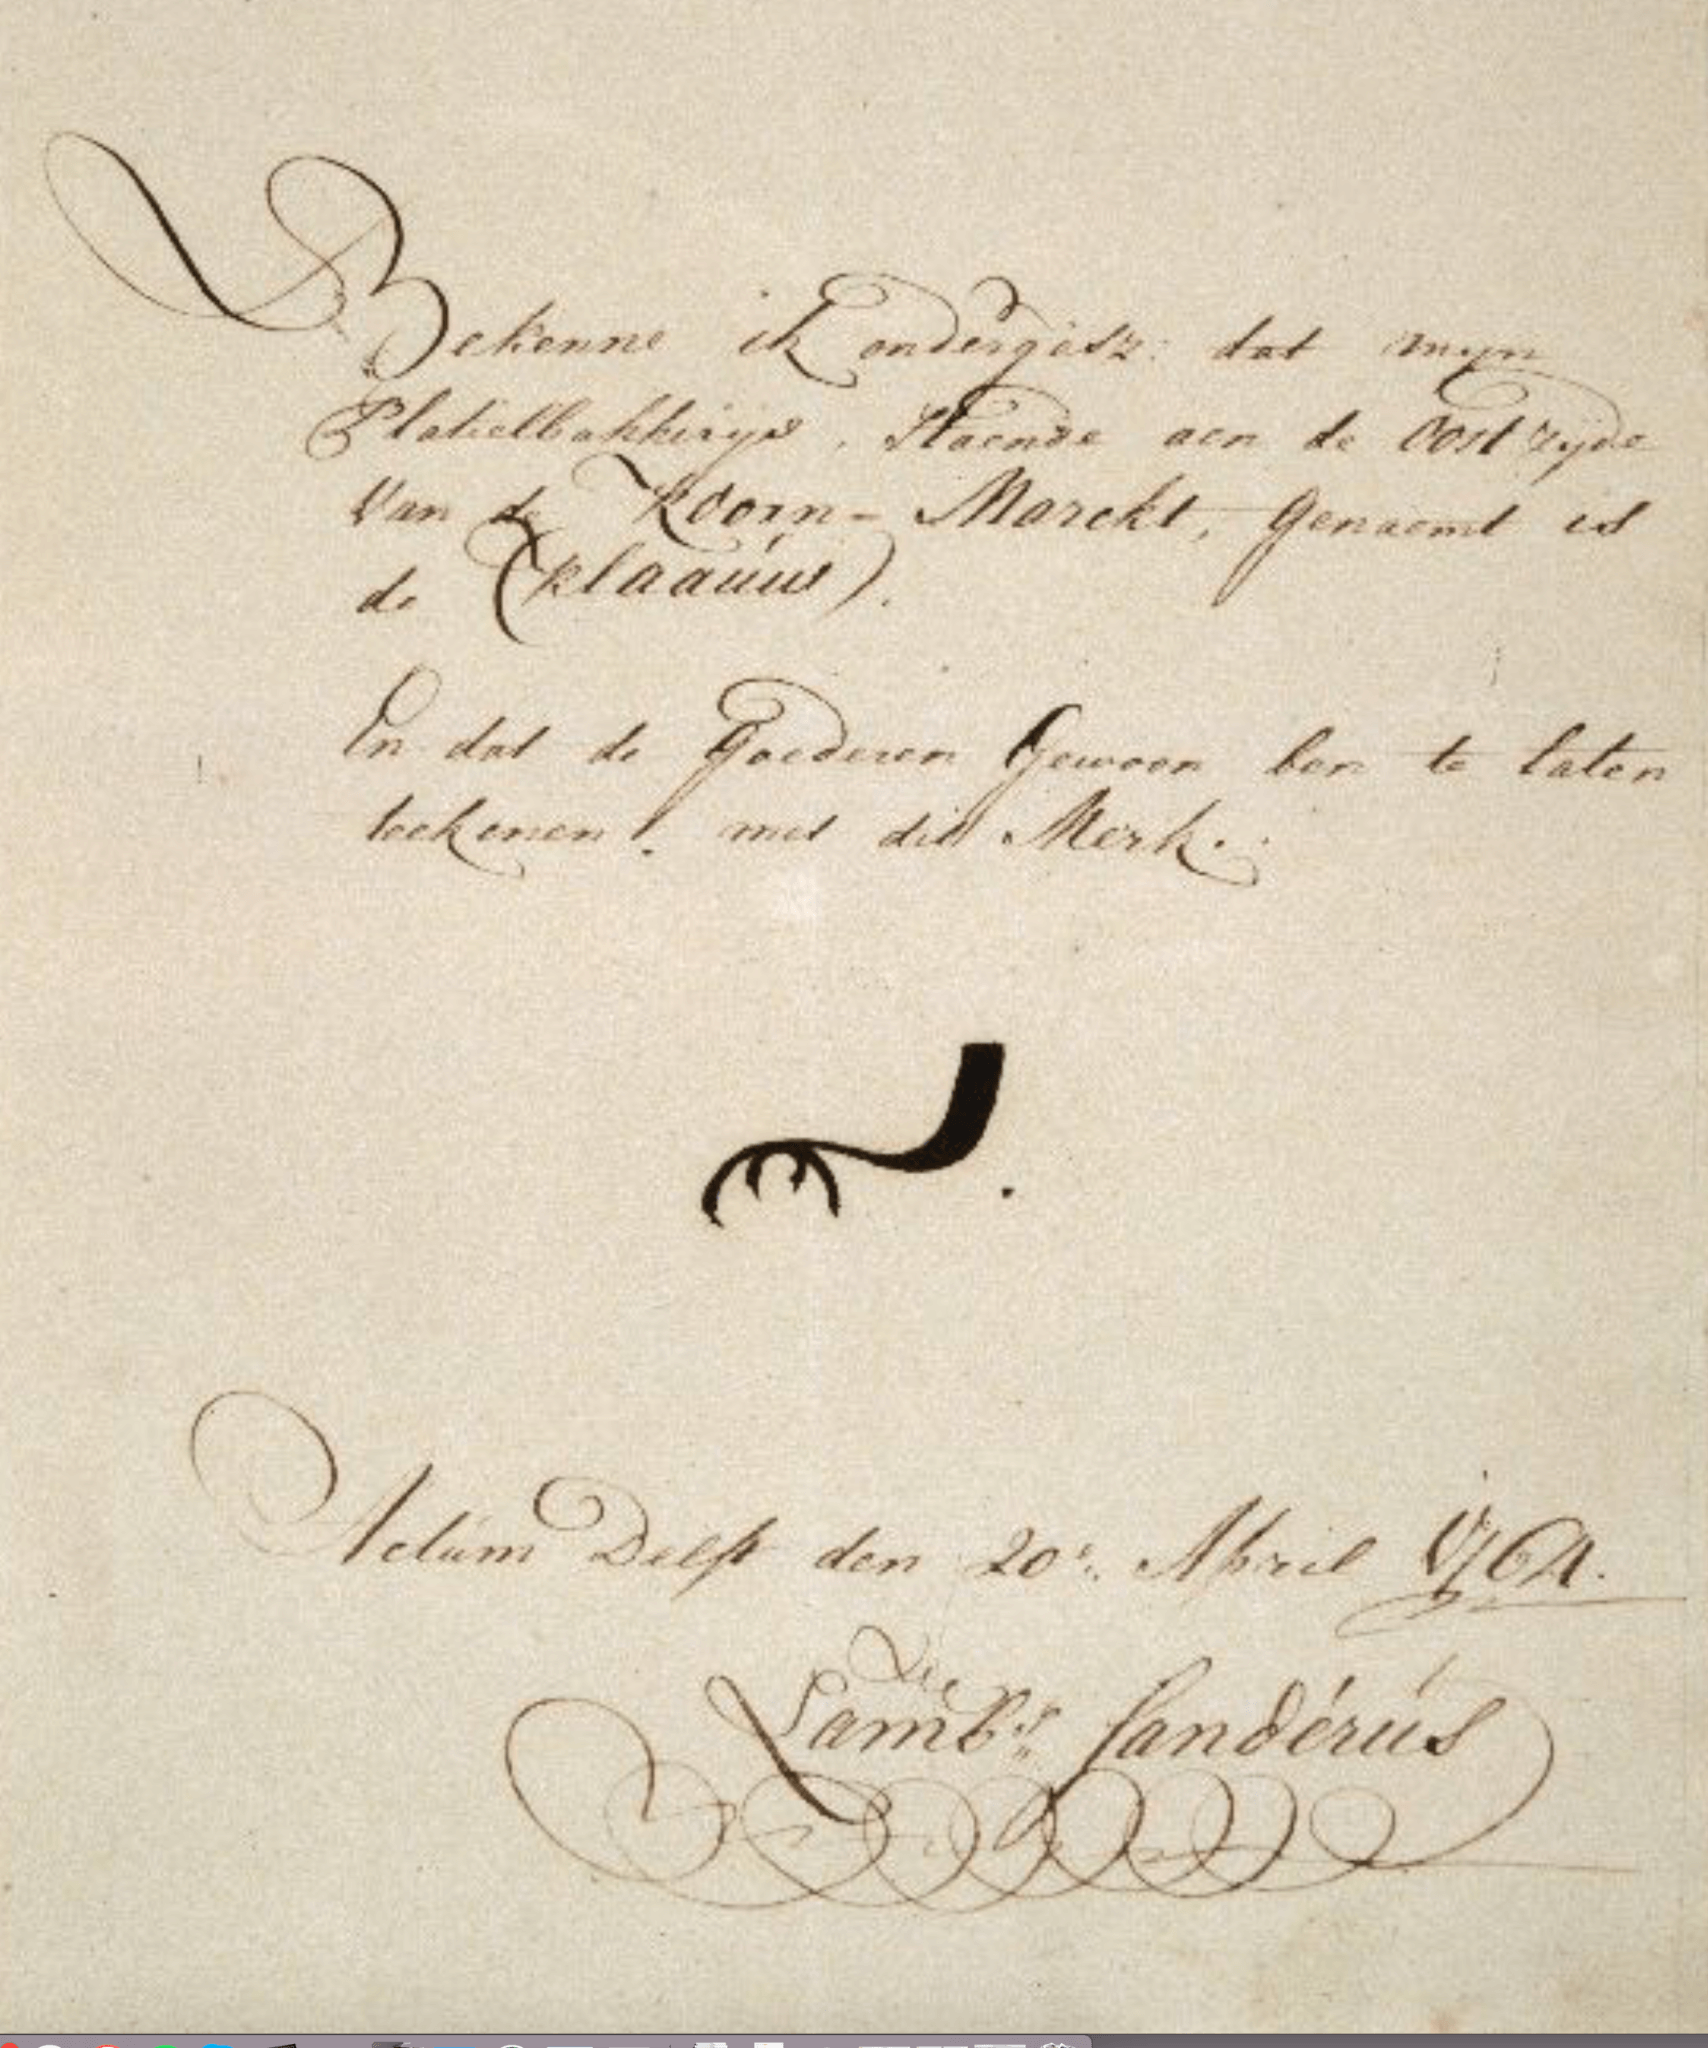 Bekenne ik ondergesz: dat myn
Platielbakkerije, Staende aen de Oost zijde
Van de Koorn- Marckt, Genaemt is
de (klaauw).
En dat de Goederen Gewoon ben te laten
teekenen. met dit Merk.
Actum Delft den 20e. April 1764.
Lambs. Sanderus